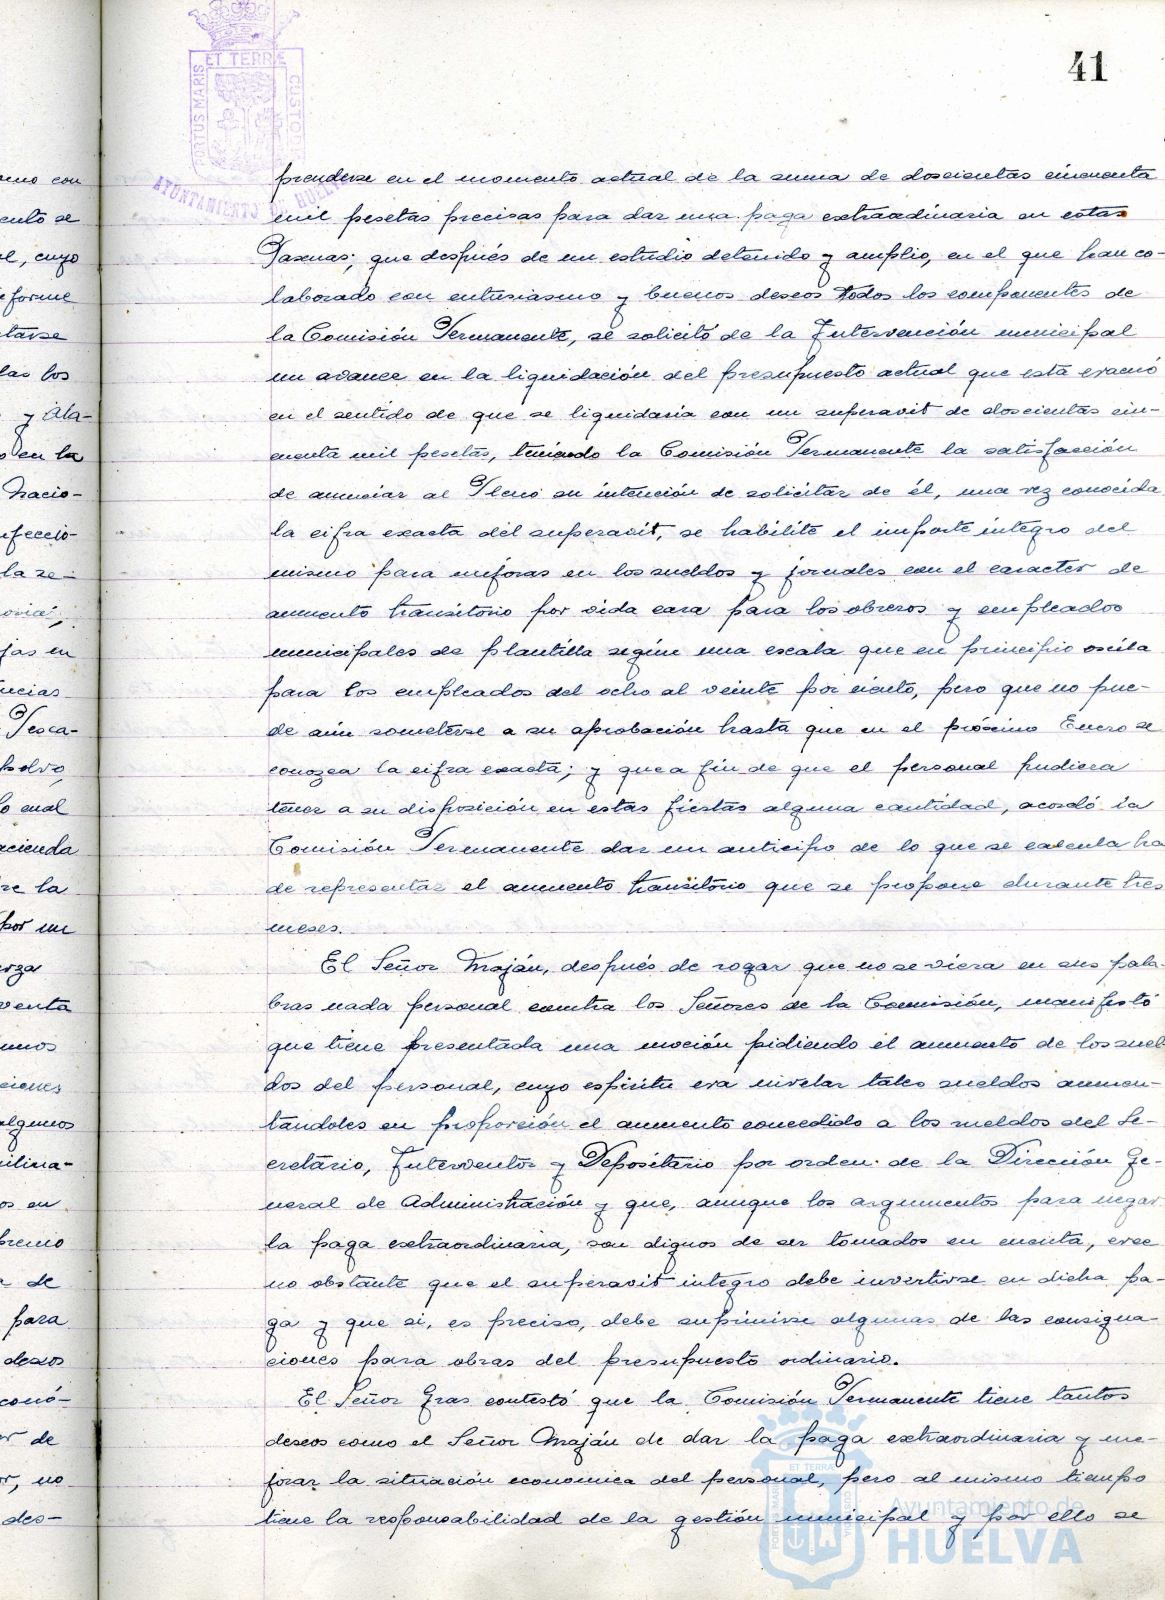 41
PORTUS MARIS ET TERRE CUSTOD
AYUNTAMIENTO DE HUELVA
prenderse en el momento actual de la suma de doscientas cincuenta
mil pesetas precisas para dar una paga extraordinaria en estas
Pascuas; que después de un estudio detenido y amplio, en el que han co-
laborado con entusiasmo y buenos deseos todos los componentes de
la Comisión Permanente, se solicitó de la Intervención municipal
un avance en la liquidación del presupuesto actual que esta evacuó
en el sentido de que se liquidaria con un superavit de doscientas cin-
cuenta mil pesetas, teniendo la Comisión Permanente la satisfacción
de anunciar al Pleno su intención de solicitar de él, una vez conocida
la cifra exacta del superavit, se habilite el importe integro del
mismo para mejoras en los sueldos y jornales con el caracter de
aumento transitorio por vida cara para los obreros y empleados
municipales de plantilla según una escala que en principio oscila
para los empleados del ocho al veinte por ciento, pero que no pue-
de aún someterse a su aprobación hasta que en el próximo Enero se
conozca la cifra exacta; y que a fin de que el personal pudiera
tener a su disposición en estas fiestas alguna cantidad, acordó la
Comisión Permanente dar un anticipo de lo que se calcula ha
de representar el aumento transitorio que se propone durante tres
meses.
El Señor Maján, después de rogar que no se viera en sus pala-
bras nada personal contra los Señores de la Comisión, manifestó
que tiene presentada una moción pidiendo el aumento de los suel
dos del personal, cuyo espiritu era nivelar tales sueldos aumen-
tándoles en proporción el aumento concedido a los sueldos del Se-
cretario, Interventor y Depositario por orden de la Dirección Ge-
neral de Administración y que, aunque los argumentos para negar
la paga extraordinaria, son dignos de ser tomados en cuenta, cree
no obstante que el superavit integro debe invertirse en dicha pa-
ga y que si, es preciso, debe suprimirse algunas de las consigna-
ciones para obras del presupuesto ordinario.
El Señor Gras contestó que la Comisión Permanente tiene tantos
deseos como el Señor Maján de dar la paga extraordinaria y me-
jorar la situación economica del personal, pero al mismo tiempo
tiene la responsabilidad de la gestión municipal y por ello se
Ayuntamiento de
HUELVA